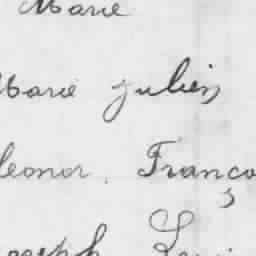 Marie
Marie julien
leonor. França
oseph Loui